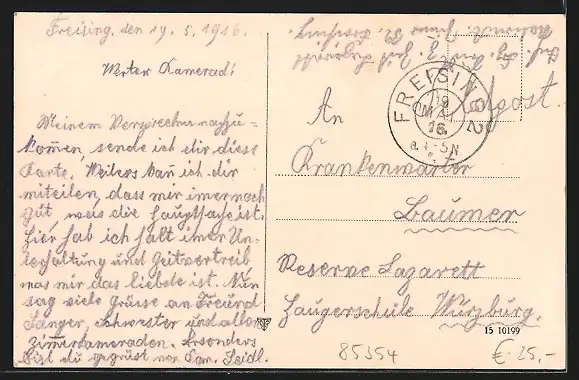 Freising, den 19. 5. 1916.
Werter Kamerad!
Meinem Versprechen nachzu-
kommen, sende ich dir diese
Karte. Weiters kan ich dir
mitteilen, dass mir imer noch
gut, was die Hauptsache ist.
hier hab ich halt imer Un-
terhaltung und Zeitvertreib
was mir das liebste ist. Nun
sag viele Grüsse an Freund
Sanger, Schwester und allen
Zimmerkameraden. Besonders
bist du gegrüst von San. Seidl.
Feldpost.
FREISING 2
19
MAI
16
4-5N
An
Krankenwärter
Baumer
Reserve Lazarett
Sängerschule Würzburg.
15 10199
85354
€ 25,-